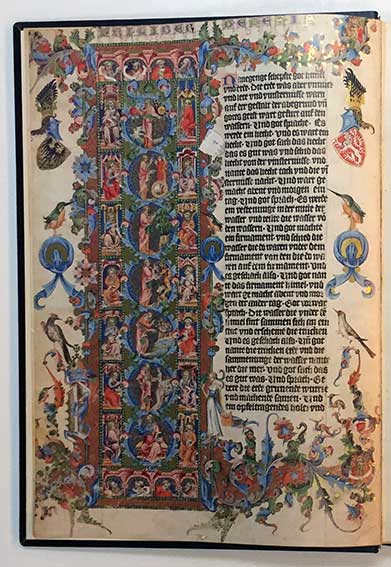 schepfte got himel
vnd erde. Die erde was aber
vnd lere vnd vinsternisse warn
auf der gestalt der abegrund vn̄
gotes geist wart gefurt auf den
wassern. Vnd got sprach. Es
werde ein liecht. Vnd es wart ein
liecht. Vnd got sach das liecht
das es gut was vnd schid das
liecht von der vinsternisse. vnd
name das liecht tack vnd die vī
sternisse nacht. Vnd wart ge
macht abent vnd morgen ein
tag. Vnd got sprach. Es werde
ein vestenunge in der mitte der
wasser vnd teilte die wasser vō
den wassern. Vnd got machte
ein firmament. vnd schied die
wasser die do waren vnder dem
firmament von den die do wa
ren auf dem firmament. vnd
es geschach also. Vnd got nan
te das firmament himel. vnd
wart ge macht abent vnd mor
gen der ander tag. Got
sprach. Die wasser die vnder dē
himel sint sammen sich an ein
stat vnd erscheine die trucken
Vnd es geschach also. Vnd got
name die trucken erde vnd die
sammenunge der wasser nante
her die mer. vnd got sach das
es gut was. Vnd sprach. Ge
bere die erde grunende wurcze
vnd machende samen. Vnd
ein opfeltragendes holcz vnd